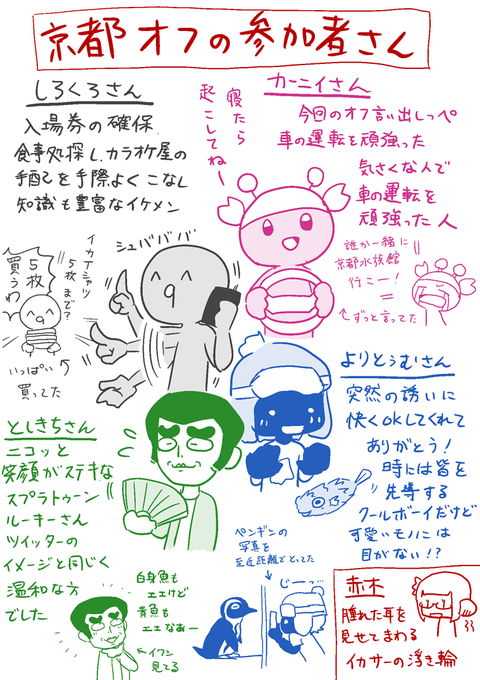 京都オフの参加者さん
しろくろさん
入場券の確保、
食事処探し、カラオケ屋の
手配を手際よくこなし
知識も豊富なイケメン
シュババババ
イカTシャツ
5枚まで?
5枚
買うわ
いっぱい
買ってた
カーニィさん
今回のオフ言い出しっぺ
車の運転を頑強った
気さくな人で
車の運転を
頑強った人
寝たら
起こしてねー
誰か一緒に
京都水族館
行こー!
ずっと言ってた
よりとぅむさん
突然の誘いに
快くOKしてくれて
ありがとう!
時には皆を
先導する
クールボーイだけど
可愛いモノには
目がない!?
ペンギンの
写真を
至近距離でとってた
じーっ…
としきちさん
ニコッと
笑顔がステキな
スプラトゥーン
ルーキーさん
ツイッターの
イメージと同じく
温和な方
でした
白身魚も
エエけど
青魚も
エエなあー
イワシ
見てる
赤木
腫れた耳を
見せてまわる
イカサーの浮き輪